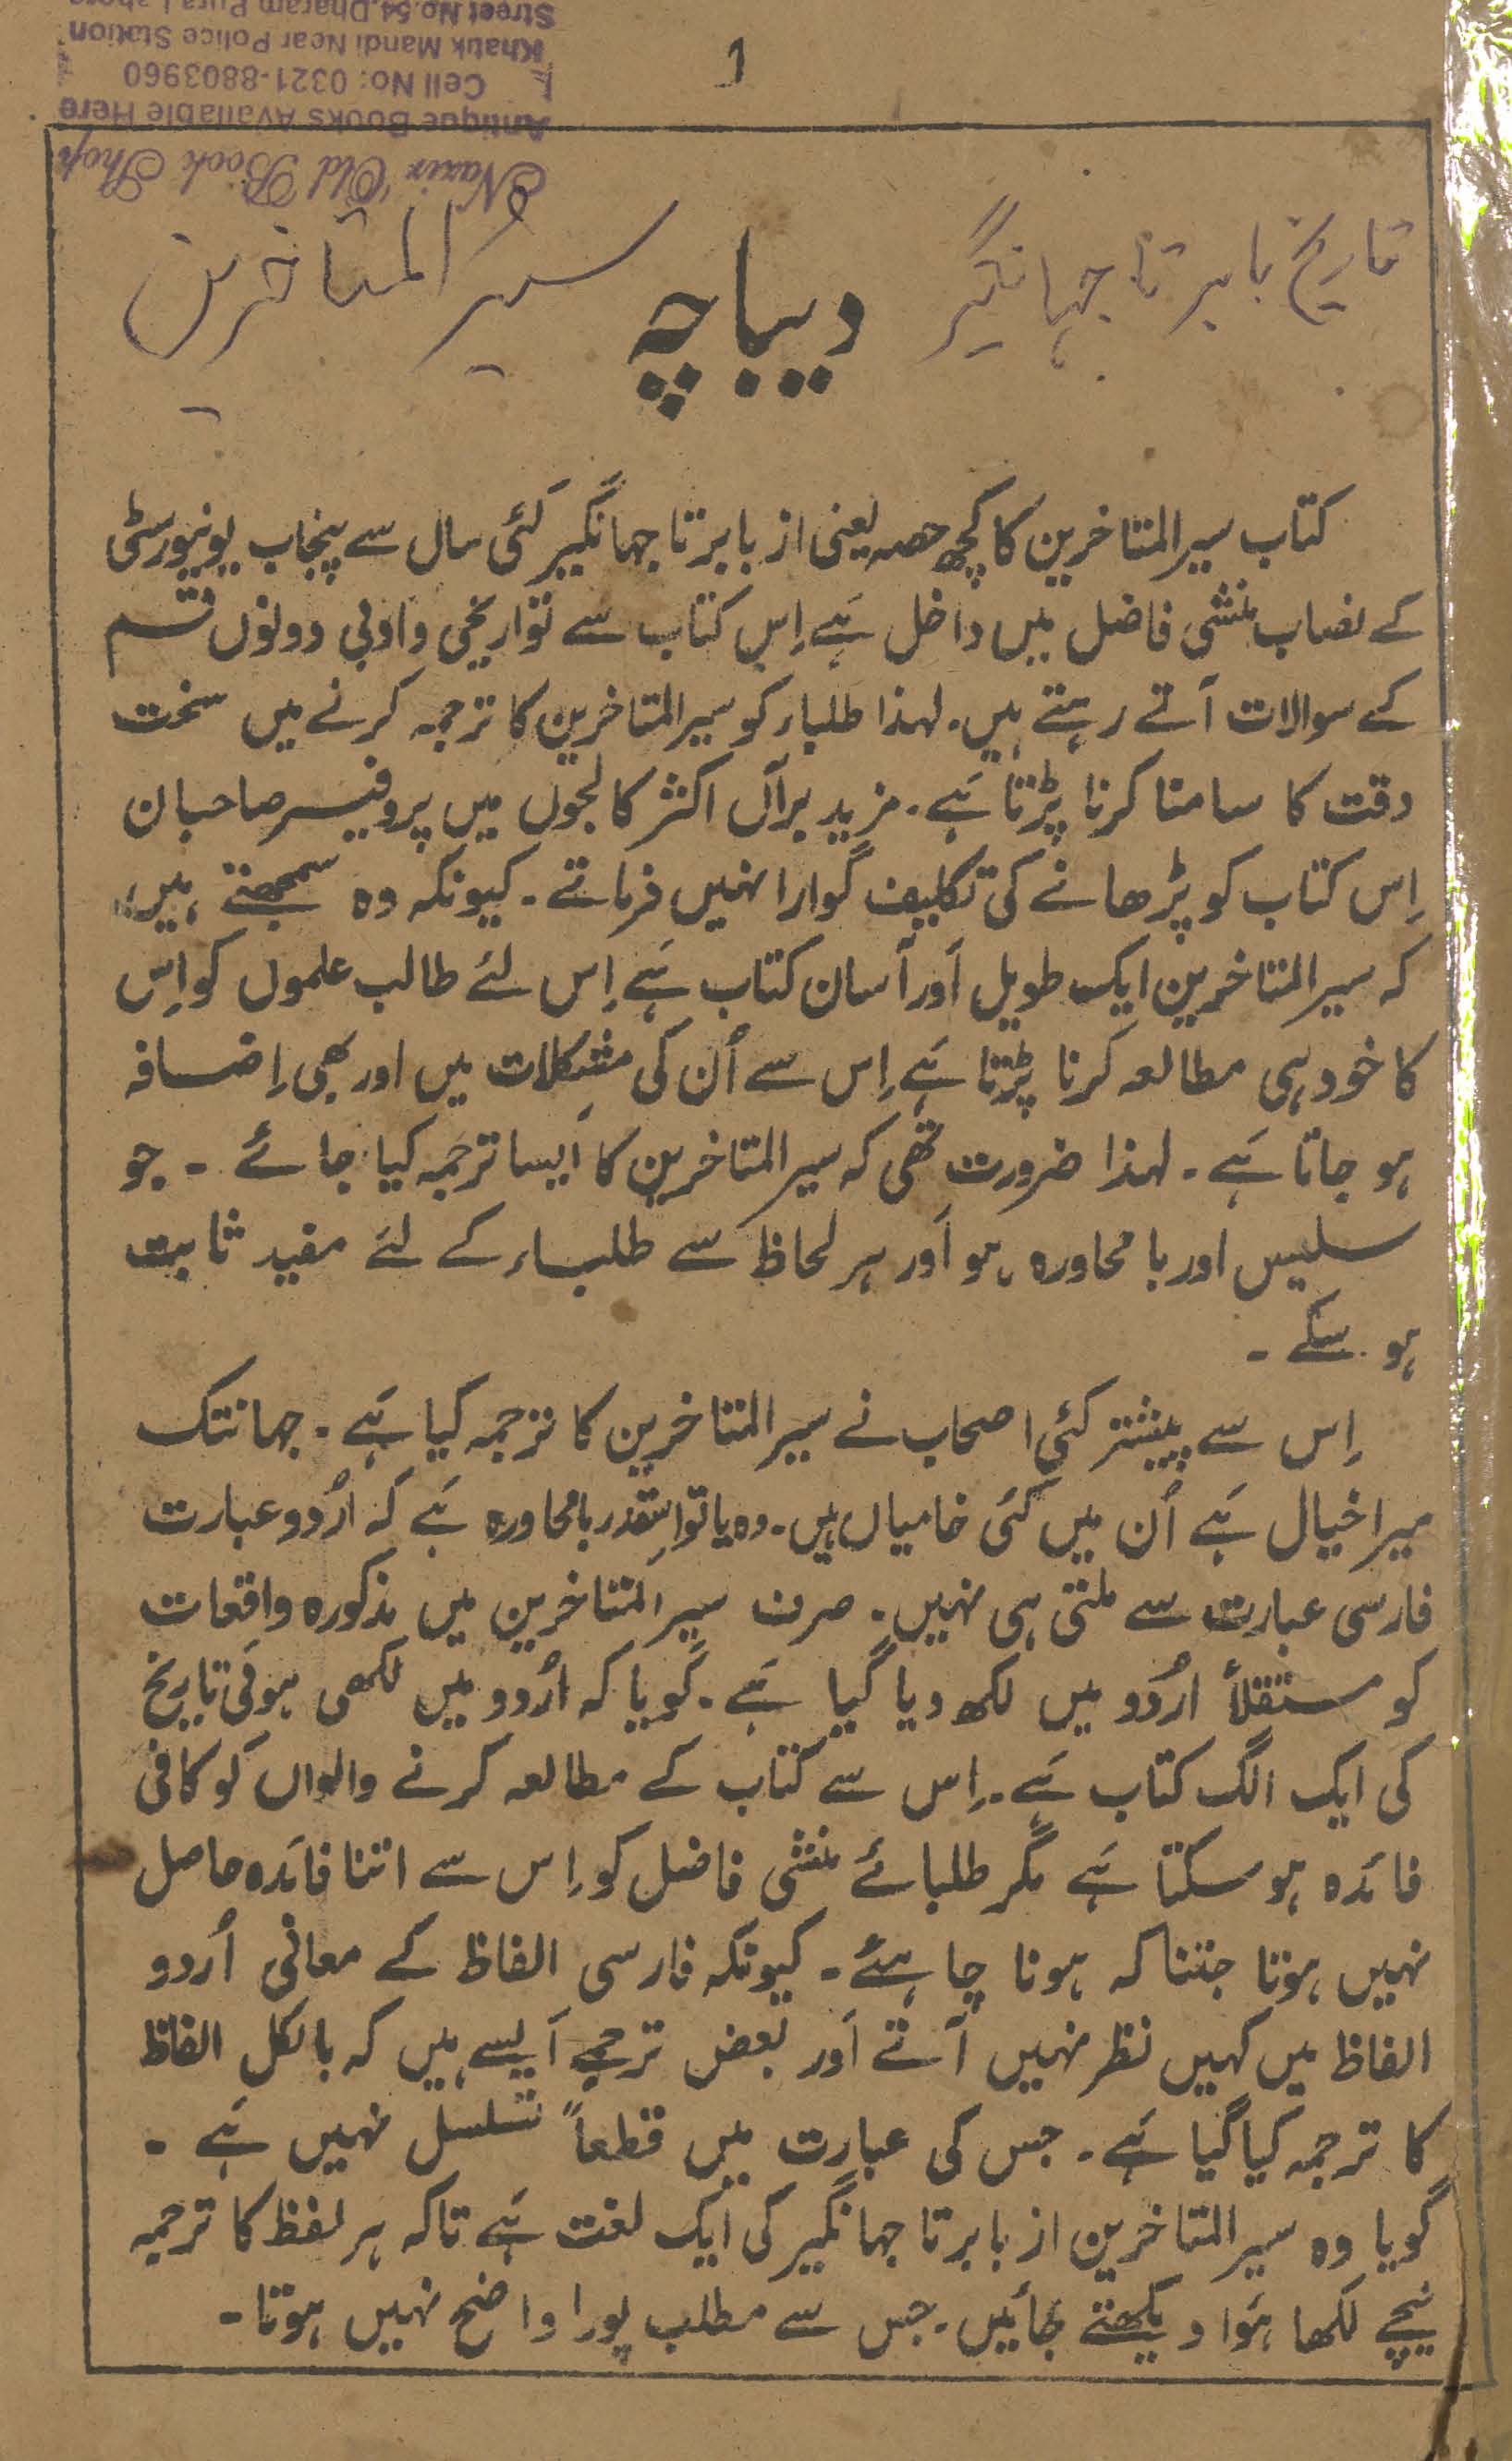 1
Street No.54, Dharam Pura Lahore
Khatik Mandi Near Police Station
Cell No: 0321-8803960
Antique Books Available Here
Nazir Old Book Shop
تاریخ بابر تا جہانگیر
سیر المتاخرین
دیباچہ
کتاب سیرالمتاخرین کا کچھ حصہ یعنی از بابر تا جہانگیر کئی سال سے پنجاب یونیورسٹی
کے نصاب منشی فاضل میں داخل ہَے اِس کتاب سے تواریخی و ادبی دونوں قسم
کے سوالات آتے رہتے ہیں۔ لہذا طلباء کو سیرالمتاخرین کا ترجمہ کرنے میں سخت
دقت کا سامنا کرنا پڑتا ہَے۔ مزید برآں اکثر کالجوں میں پروفیسر صاحبان
اِس کتاب کو پڑھانے کی تکلیف گوارا نہیں فرماتے۔ کیونکہ وہ سمجھتے ہیں
کہ سیرالمتاخرین ایک طویل اَور آسان کتاب ہَے اِس لئے طالب علموں کو اِس
کا خود ہی مطالعہ کرنا پڑتا ہَے اِس سے اُن کی مشکلات میں اور بھی اِضافہ
ہو جاتا ہَے۔ لہذا ضرورت تھی کہ سیرالمتاخرین کا اَیسا ترجمہ کیا جائے۔ جو
سلیس اور با محاورہ ہو اَور ہر لحاظ سے طلباء کے لئے مفید ثابت
ہو سکے۔
اِس سے پیشتر کئی اصحاب نے سیرالمتاخرین کا ترجمہ کیا ہَے۔ جہانتک
میرا خیال ہَے اُن میں کئی خامیاں ہیں۔ وہ یا تو اِسقدر بامحاورہ ہَے کہ اُردو عبارت
فارسی عبارت سے ملتی ہی نہیں۔ صرف سیرالمتاخرین میں مذکورہ واقعات
کو مستقلاً اُردو میں لکھ دیا گیا ہَے۔ گویا کہ اُردو میں لکھی ہوئی تاریخ
کی ایک الگ کتاب ہَے۔ اِس سے کتاب کے مطالعہ کرنے والواں کو کافی
فائدہ ہو سکتا ہَے مگر طلبائے منشی فاضل کو اِس سے اتنا فائدہ حاصل
نہیں ہوتا جتنا کہ ہونا چاہئے۔ کیونکہ فارسی الفاظ کے معانی اُردو
الفاظ میں کہیں نظر نہیں آتے اَور بعض ترجمے اَیسے ہیں کہ بالکل الفاظ
کا ترجمہ کیا گیا ہَے۔ جس کی عبارت میں قطعاً تسلسل نہیں ہَے۔
گویا وہ سیرالمتاخرین از بابر تا جہانگیر کی ایک لغت ہَے تاکہ ہر لفظ کا ترجمہ
نیچے لکھا ہَوا دیکھتے جائیں۔ جس سے مطلب پورا واضح نہیں ہوتا۔